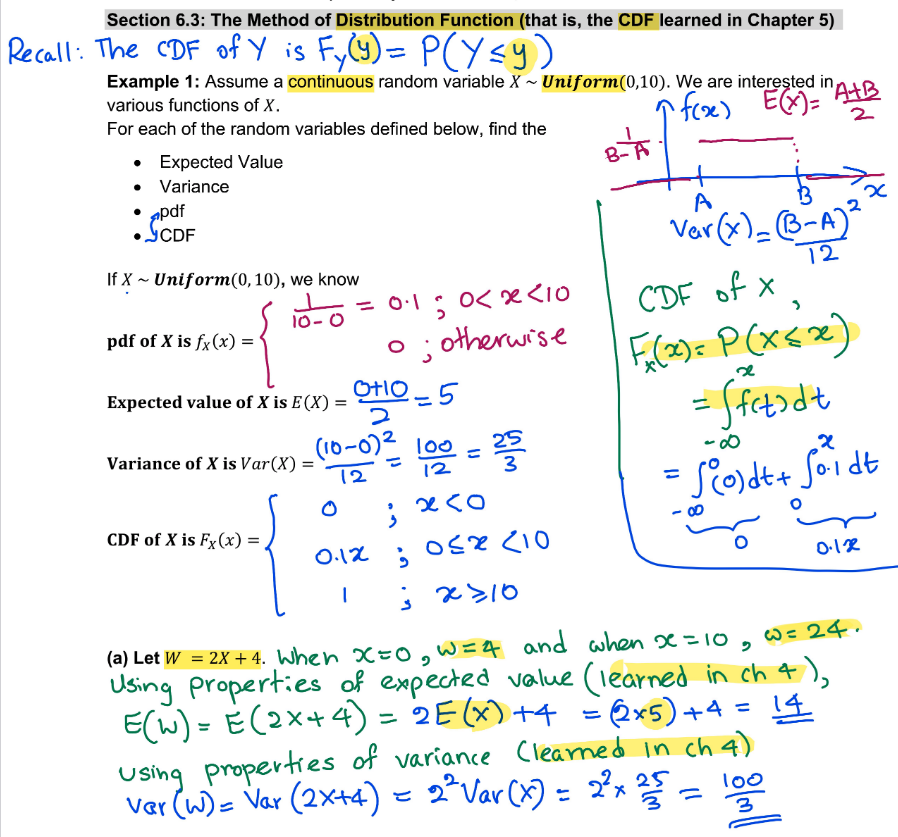 Section 6.3: The Method of Distribution Function (that is, the CDF learned in Chapter 5)
Recall: The CDF of Y is F_Y(y) = P(Y ≤ y)
Example 1: Assume a continuous random variable X ~ Uniform(0,10). We are interested in
various functions of X.
For each of the random variables defined below, find the
• Expected Value
• Variance
• pdf
• CDF
f(x)
E(x) = (A+B)/2
1/(B-A)
A B x
Var(x) = (B-A)²/12
If X ~ Uniform(0, 10), we know
pdf of X is f_X(x) = { 1/(10-0) = 0.1 ; 0 < x < 10
0 ; otherwise
Expected value of X is E(X) = (0+10)/2 = 5
Variance of X is Var(X) = (10-0)²/12 = 100/12 = 25/3
CDF of X is F_X(x) = { 0 ; x < 0
0.1x ; 0 ≤ x < 10
1 ; x ≥ 10
CDF of X,
F_X(x) = P(X ≤ x)
= ∫_{-∞}^{x} f(t) dt
= ∫_{-∞}^{0} (0) dt + ∫_{0}^{x} 0.1 dt
0 0.1x
(a) Let W = 2X + 4. When x = 0, w = 4 and when x = 10, w = 24.
Using properties of expected value (learned in ch 4),
E(W) = E(2X+4) = 2E(X) + 4 = (2×5) + 4 = 14
using properties of variance (learned in ch 4)
Var(W) = Var(2X+4) = 2² Var(X) = 2² × 25/3 = 100/3